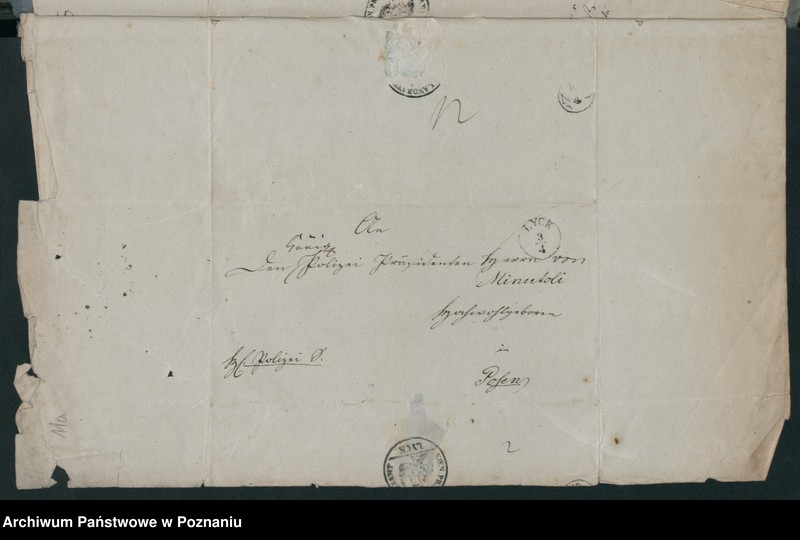 LANDRATH
An
LYCK
3
4
Königl
Den Polizei Präsidenten Herrn von
Minutoli
Hochwohlgeboren
in
Posen
Polizei S.
11a
LYCK
2
Archiwum Państwowe w Poznaniu